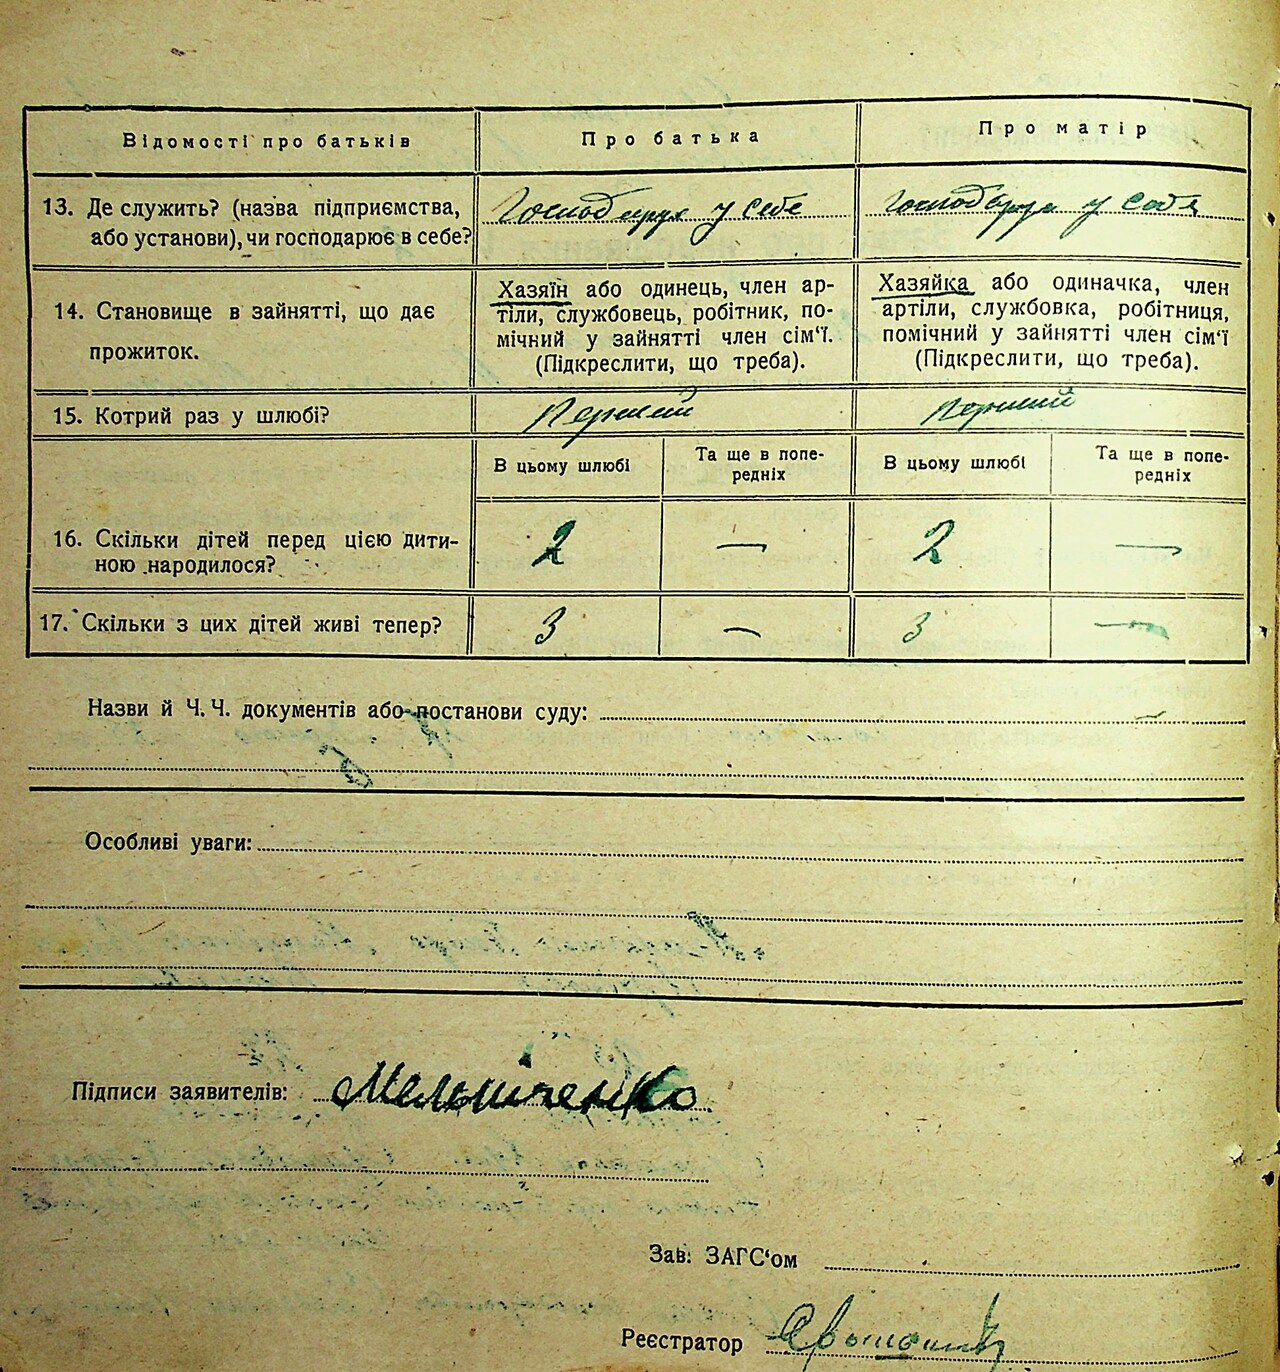 Відомості про батьків
Про батька
Про матір
13. Де служить? (назва підприємства,
або установи), чи господарює в себе?
Господарує у себе
Господарує у себе
14. Становище в зайнятті, що дає
прожиток.
Хазяїн або одинець, член ар-
тіли, службовець, робітник, по-
мічний у зайнятті член сім‘ї.
(Підкреслити, що треба).
Хазяйка або одиначка, член
артіли, службовка, робітниця,
помічний у зайнятті член сім‘ї
(Підкреслити, що треба).
15. Котрий раз у шлюбі?
Перший
Перший
В цьому шлюбі
Та ще в попе-
редніх
В цьому шлюбі
Та ще в попе-
редніх
16. Скільки дітей перед цією дити-
ною народилося?
2 — 2 —
17. Скільки з цих дітей живі тепер?
3 — 3 —
Назви й Ч. Ч. документів або постанови суду: —
Особливі уваги:
Підписи заявителів: Мельніченко
Зав. ЗАГС‘ом
Реєстратор